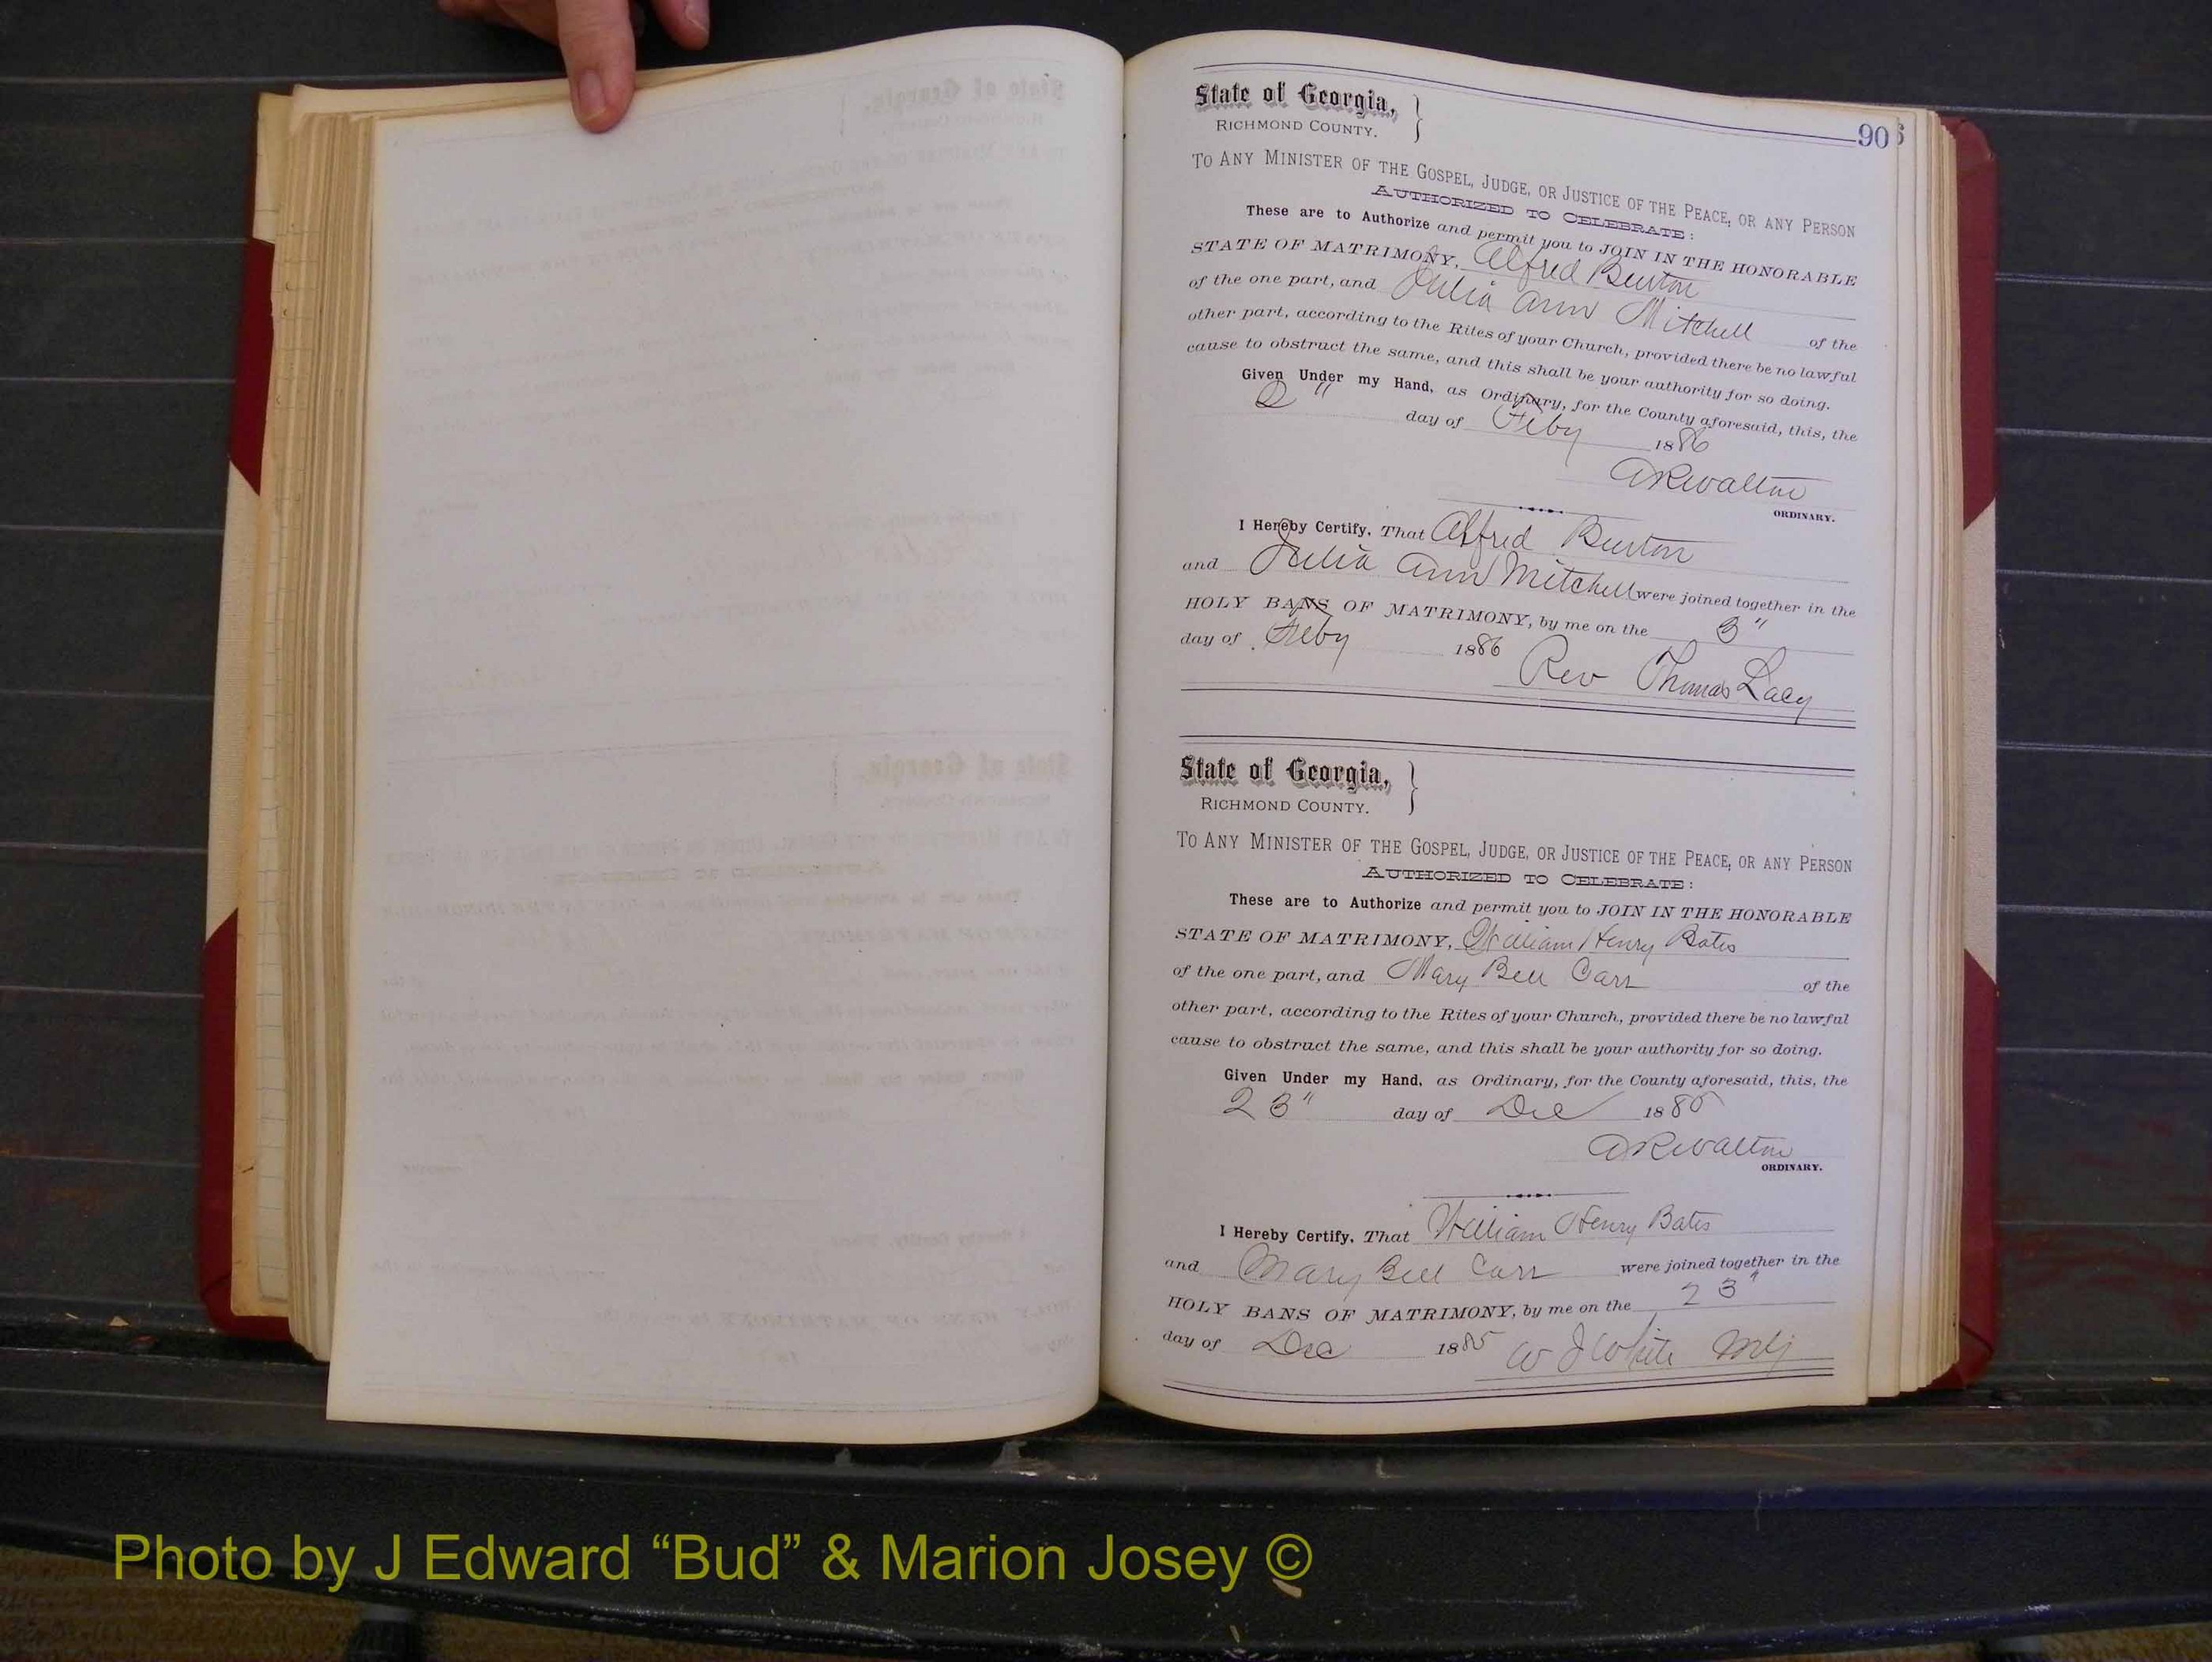 90
State of Georgia,
RICHMOND COUNTY.
TO ANY MINISTER OF THE GOSPEL, JUDGE, OR JUSTICE OF THE PEACE, OR ANY PERSON
AUTHORIZED TO CELEBRATE:
These are to Authorize and permit you to JOIN IN THE HONORABLE
STATE OF MATRIMONY, Alfred Burton
of the one part, and Julia Ann Mitchell of the
other part, according to the Rites of your Church, provided there be no lawful
cause to obstruct the same, and this shall be your authority for so doing.
Given Under my Hand, as Ordinary, for the County aforesaid, this, the
2" day of Feby 1886
A R Walton
ORDINARY.
I Hereby Certify, That Alfred Burton
and Julia Ann Mitchell were joined together in the
HOLY BANS OF MATRIMONY, by me on the 3"
day of Feby 1886 Rev Thomas Lacy
State of Georgia,
RICHMOND COUNTY.
TO ANY MINISTER OF THE GOSPEL, JUDGE, OR JUSTICE OF THE PEACE, OR ANY PERSON
AUTHORIZED TO CELEBRATE:
These are to Authorize and permit you to JOIN IN THE HONORABLE
STATE OF MATRIMONY, William Henry Bates
of the one part, and Mary Bell Carr of the
other part, according to the Rites of your Church, provided there be no lawful
cause to obstruct the same, and this shall be your authority for so doing.
Given Under my Hand, as Ordinary, for the County aforesaid, this, the
23" day of Dec 1885
A R Walton
ORDINARY.
I Hereby Certify, That William Henry Bates
and Mary Bell Carr were joined together in the
HOLY BANS OF MATRIMONY, by me on the 23"
day of Dec 1885 W J White
Photo by J Edward “Bud” & Marion Josey ©